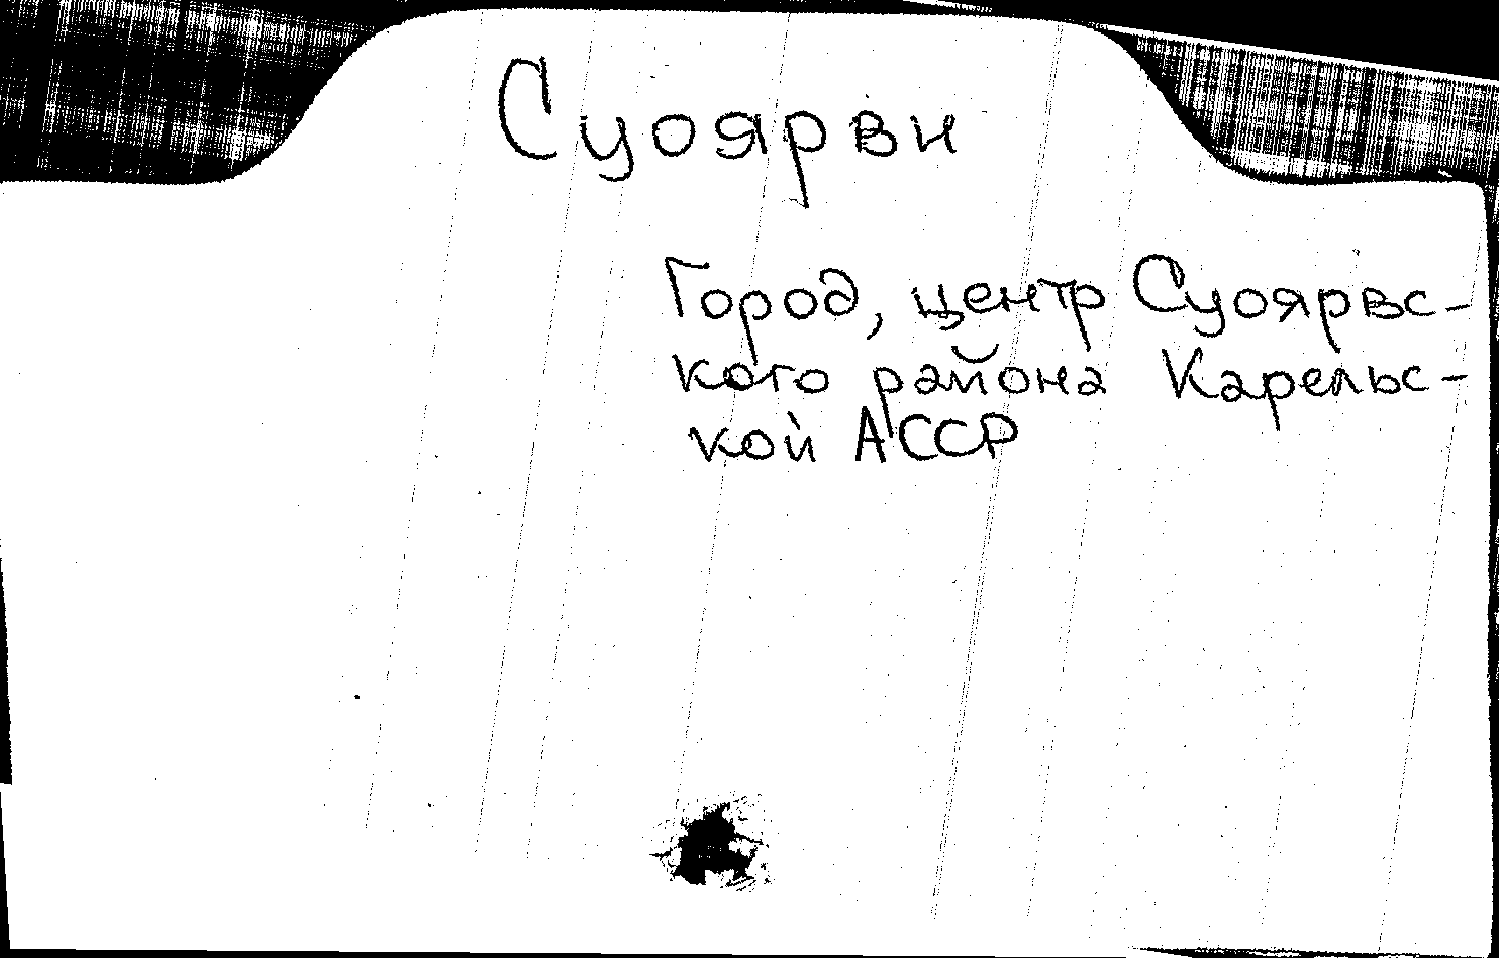 Суоярви
Город, центр Суоярвс-
кого района Карельс-
кой АССР